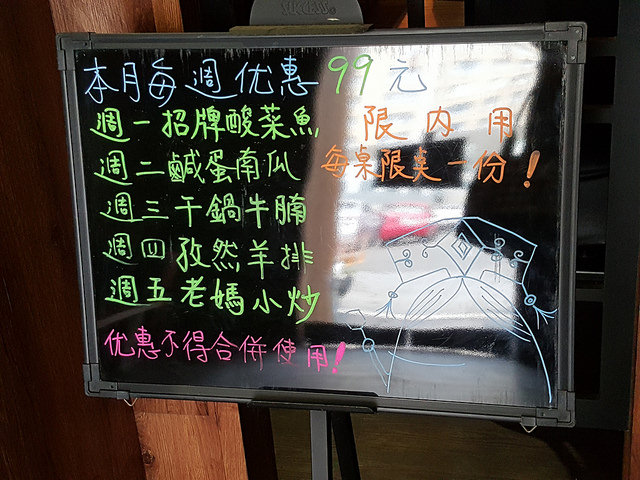 SUCCESS
本月每週优惠99元
週一招牌酸菜魚 限內用
週二鹹蛋南瓜 每桌限點一份!
週三干鍋牛腩
週四孜然羊排
週五老媽小炒
优惠不得合併使用!